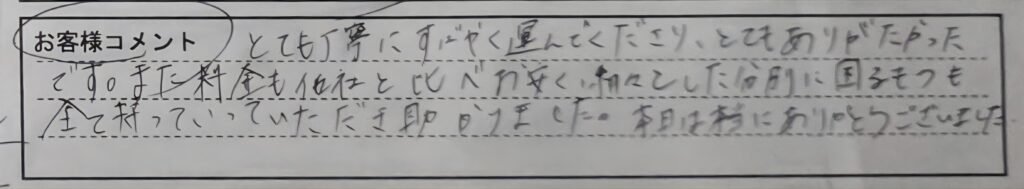 お客様コメント とても丁寧にすばやく運んでくださり、とてもありがたかった
です。また料金も他社と比べお安く、細々とした分別に困るもつも
全て持っていっていただき助かりました。本日は本当にありがとうございました